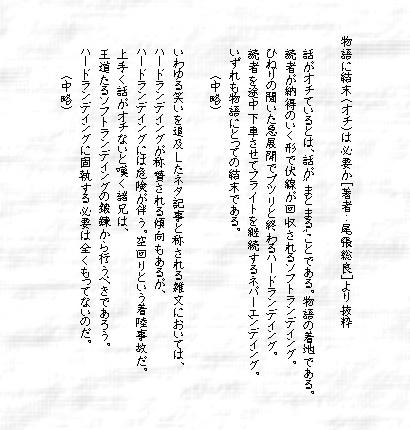 物語に結末（オチ）は必要か［著者：尾張総良］より抜粋
話がオチているとは、話が「まとまる」ことである。物語の着地である。
読者が納得のいく形で伏線が回収されるソフトランディング。
ひねりの聞いた急展開でブツリと終わるハードランディング。
読者を途中下車させてフライトを継続するネバーエンディング。
いずれも物語にとっての結末である。
（中略）
いわゆる笑いを追及したネタ記事と称される雑文においては、
ハードランディングが称賛される傾向もあるが、
ハードランディングには危険が伴う。空回りという着陸事故だ。
上手く話がオチないと嘆く諸兄は、
王道たるソフトランディングの鍛錬から行うべきであろう。
ハードランディングに固執する必要は全くもってないのだ。
（中略）